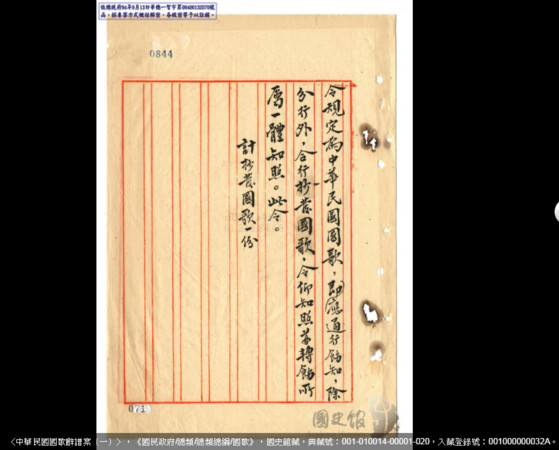 依總統府94年9月13日華總一智字第09400132370號
0844
令規定為中華民國國歌，即應通行飭知，除
分行外，合行抄發國歌，令仰知照並轉飭所
屬一體知照。此令。
計抄發國歌一份
071
國史館
〈中華民國國歌歌譜案（一）〉，《國民政府/總類/總類總綱/國歌》，國史館藏，典藏號：001-010014-00001-020，入藏登錄號：001000000032A。